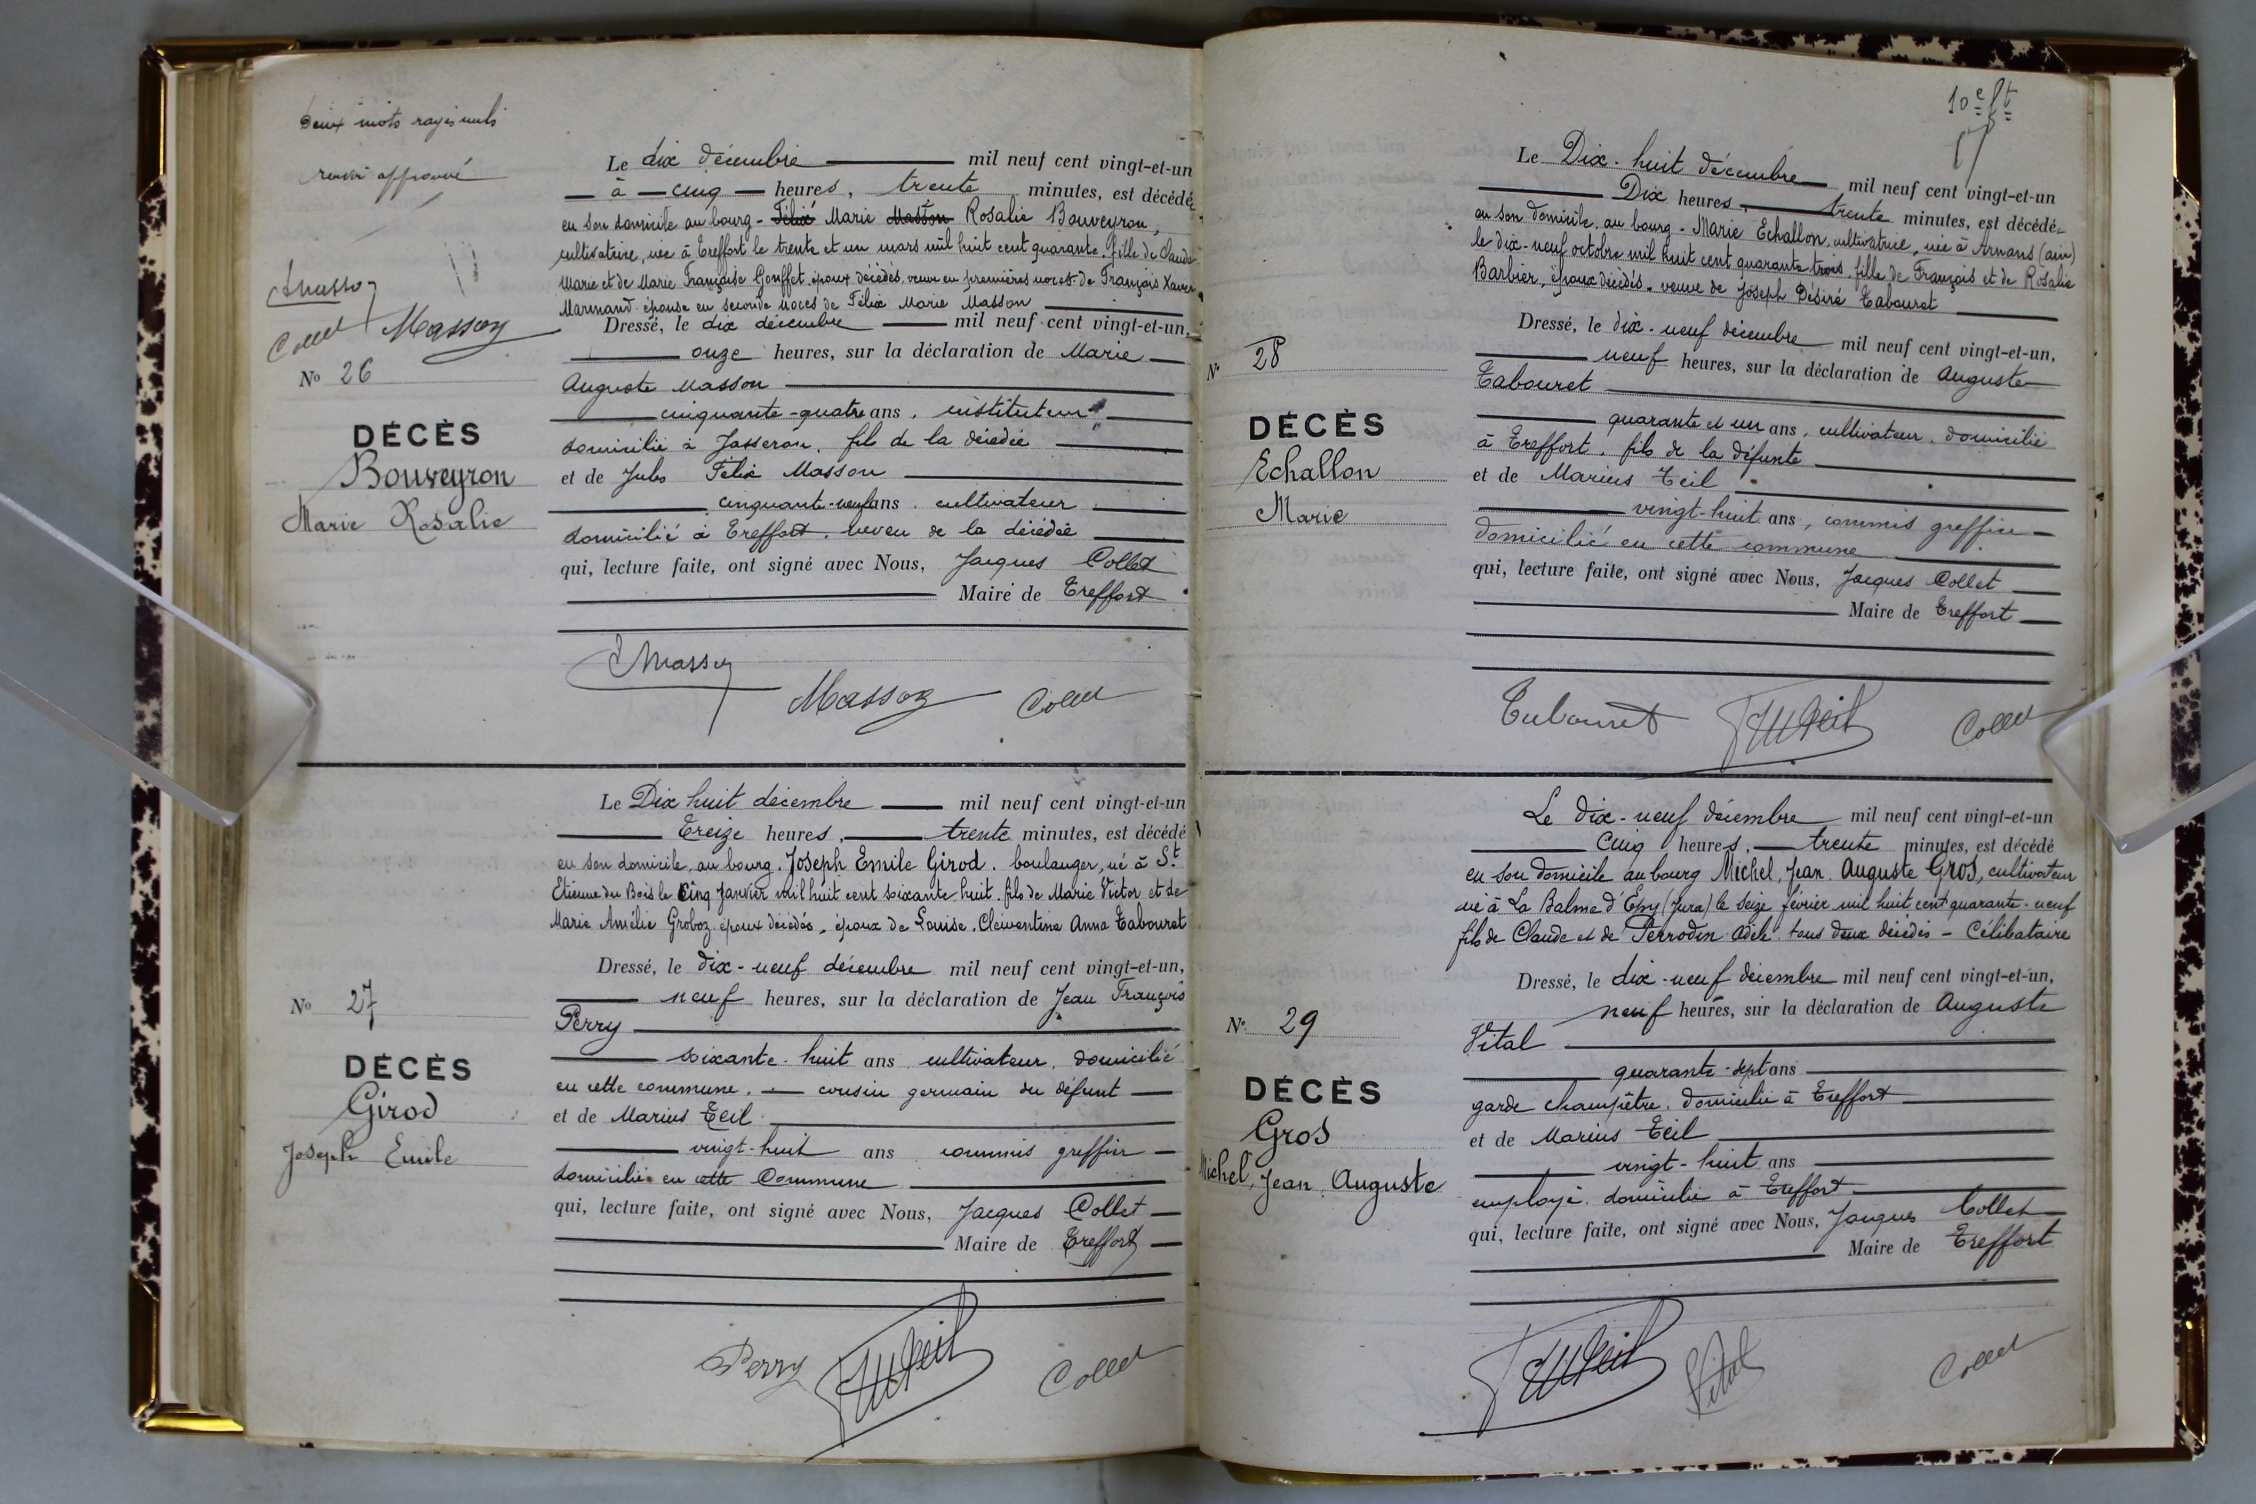 Deux mots rayés nuls
renvoi approuvé
Masson
Collet Masson
Nº 26
DÉCÈS
Bouveyron
Marie Rosalie
Le dix décembre mil neuf cent vingt-et-un
à cinq heures, trente minutes, est décédée
en son domicile au bourg - Félix Marie Masson Rosalie Bouveyron,
cultivatrice, née à Treffort le trente et un mars mil huit cent quarante. fille de Claude
Marie et de Marie Françoise Gouffet, époux décédés, veuve en premières noces de François Xavier
Marmand épouse en seconde noces de Félix Marie Masson
Dressé, le dix décembre mil neuf cent vingt-et-un,
onze heures, sur la déclaration de Marie
Auguste Masson
cinquante-quatre ans, instituteur
domicilié à Jasseron, fils de la décédée
et de Jules Félix Masson
cinquante-neuf ans, cultivateur
domicilié à Treffort, neveu de la décédée
qui, lecture faite, ont signé avec Nous, Jacques Collet
Maire de Treffort
Masson
Masson Collet
Nº 27
DÉCÈS
Girod
Joseph Emile
Le Dix huit décembre mil neuf cent vingt-et-un
Treize heures, trente minutes, est décédé
en son domicile, au bourg, Joseph Emile Girod, boulanger, né à St
Etienne du Bois le Cinq Janvier mil huit cent soixante huit, fils de Marie Victor et de
Marie Amélie Groboz époux décédés, époux de Louise, Clémentine Anna Tabouret
Dressé, le dix-neuf décembre mil neuf cent vingt-et-un,
neuf heures, sur la déclaration de Jean François
Perry
soixante-huit ans cultivateur, domicilié
en cette commune, cousin germain du défunt
et de Marius Teil
vingt-huit ans commis greffier
domicilié en cette Commune
qui, lecture faite, ont signé avec Nous, Jacques Collet
Maire de Treffort
Perry Teil Collet
10e ft
Nº 28
DÉCÈS
Echallon
Marie
Le Dix-huit décembre mil neuf cent vingt-et-un
Dix heures, trente minutes, est décédée
en son domicile, au bourg - Marie Echallon, cultivatrice, née à Arnans (ain)
le dix-neuf octobre mil huit cent quarante trois, fille de François et de Rosalie
Barbier, époux décédés, veuve de Joseph Désiré Tabouret
Dressé, le dix-neuf décembre mil neuf cent vingt-et-un,
neuf heures, sur la déclaration de Auguste
Tabouret
quarante et un ans, cultivateur, domicilié
à Treffort, fils de la défunte
et de Marius Teil
vingt-huit ans, commis greffier
domicilié en cette commune
qui, lecture faite, ont signé avec Nous, Jacques Collet
Maire de Treffort
Tabouret Teil Collet
Nº 29
DÉCÈS
Gros
Michel, Jean, Auguste
Le dix-neuf décembre mil neuf cent vingt-et-un
Cinq heures, trente minutes, est décédé
en son domicile au bourg Michel, Jean, Auguste Gros, cultivateur
né à La Balme d'Epy (Jura) le seize février mil huit cent quarante-neuf
fils de Claude et de Perrodin Adèle tous deux décédés - Célibataire
Dressé, le dix-neuf décembre mil neuf cent vingt-et-un,
neuf heures, sur la déclaration de Auguste
Vital
quarante-sept ans
garde champêtre, domicilié à Treffort
et de Marius Teil
vingt-huit ans
employé, domicilié à Treffort
qui, lecture faite, ont signé avec Nous, Jacques Collet
Maire de Treffort
Teil Vital Collet